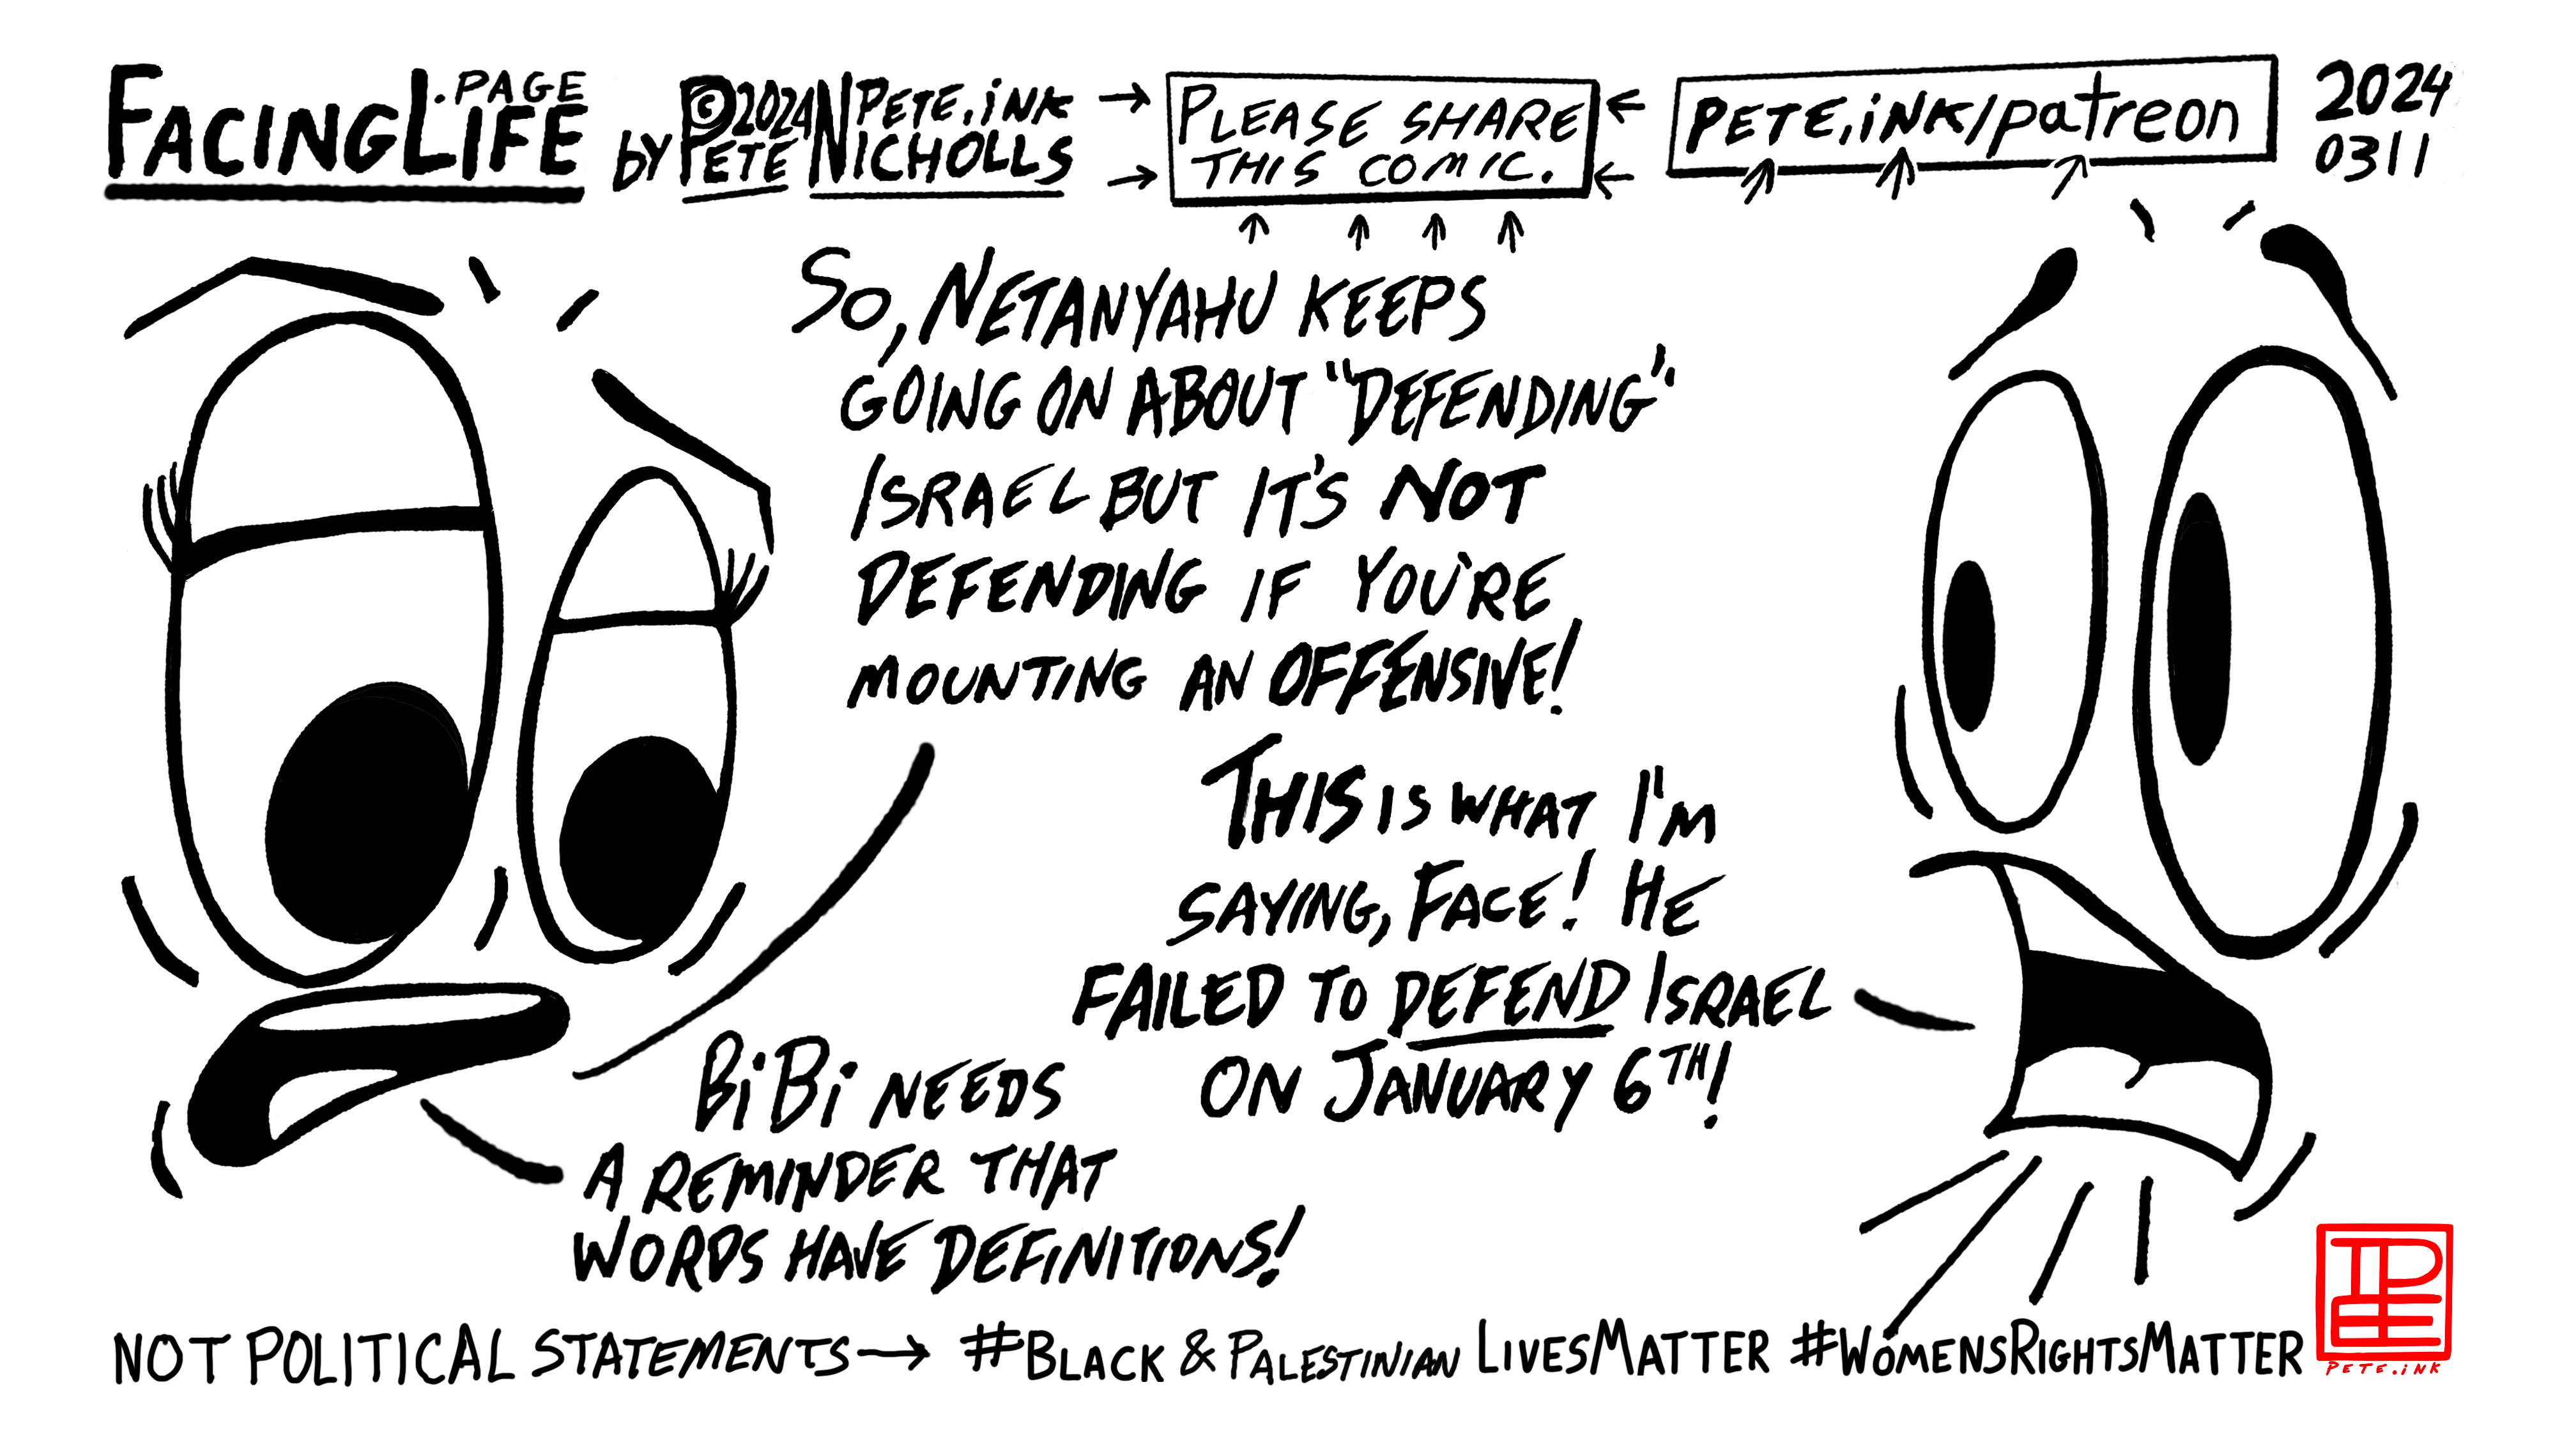 FACINGLIFE.PAGE
by PETE NICHOLLS
©2024 PETE.iNK
→ PLEASE SHARE ←
→ THIS COMIC. ←
↑ ↑ ↑ ↑
PETE.iNK/patreon
2024
0311
SO, NETANYAHU KEEPS
GOING ON ABOUT "DEFENDING"
ISRAEL BUT IT'S NOT
DEFENDING IF YOU'RE
MOUNTING AN OFFENSIVE!
THIS IS WHAT I'M
SAYING, FACE! HE
FAILED TO DEFEND ISRAEL
ON JANUARY 6TH!
BiBi NEEDS
A REMINDER THAT
WORDS HAVE DEFiNiTIONS!
NOT POLITICAL STATEMENTS → #BLACK & PALESTINIAN LIVESMATTER #WOMENSRIGHTSMATTER
PETE.iNK